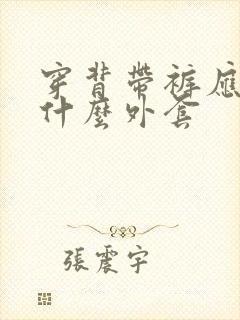 穿背帶褲應
什麼外套
張震宇